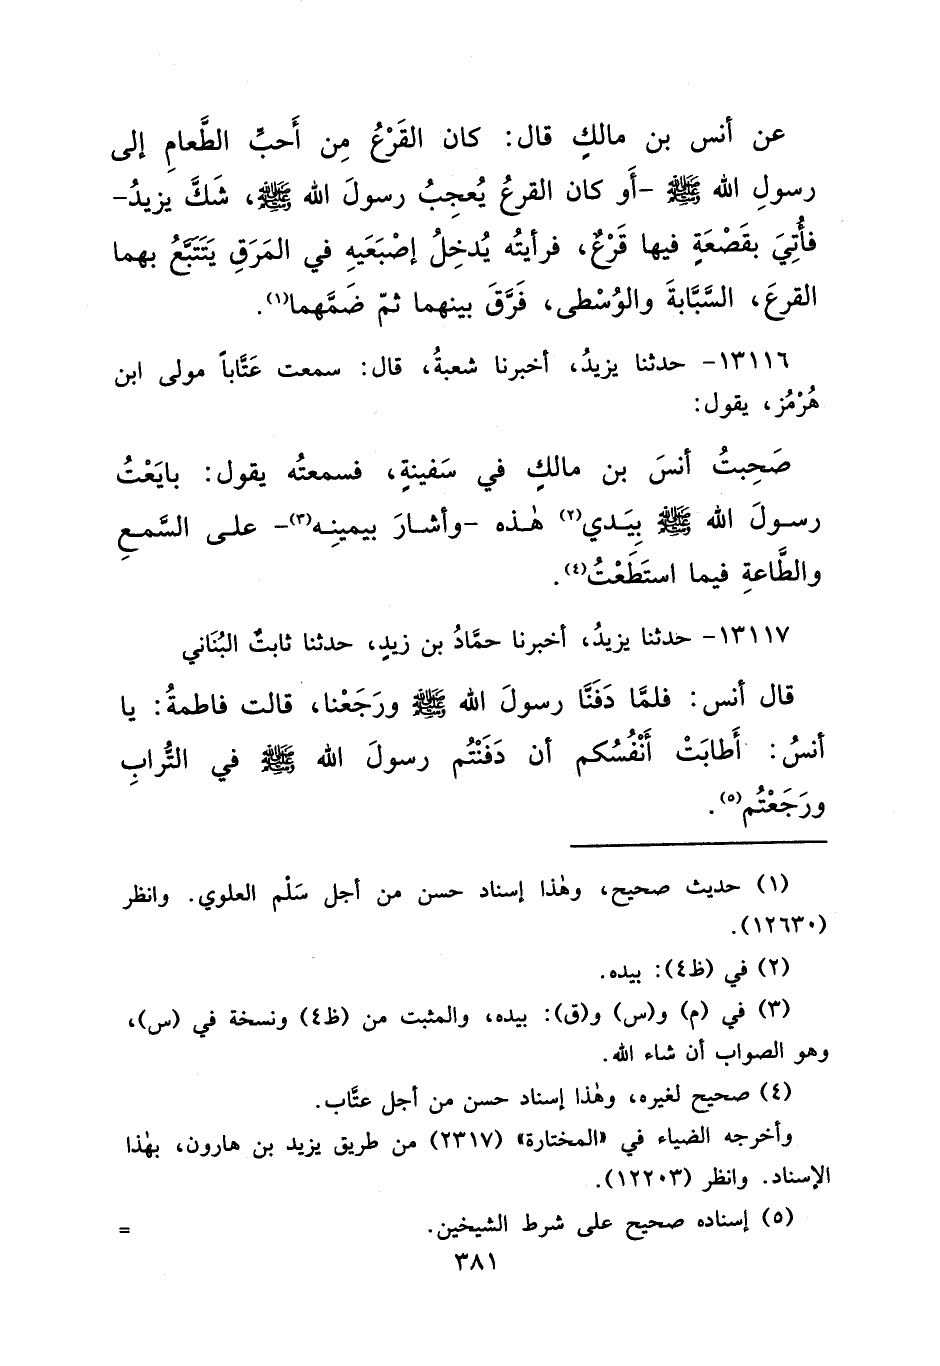 عن أنس بن مالكٍ قال: كان القَرْعُ مِن أَحبِّ الطَّعامِ إلى
رسولِ الله ﷺ -أَو كان القرعُ يُعجِبُ رسولَ الله ﷺ، شَكَّ يزيدُ-
فأُتِيَ بقَصْعَةٍ فيها قَرْعٌ، فرأيتُه يُدخِلُ إصْبَعَيهِ في المَرَقِ يَتَتَبَّعُ بهما
القرعَ، السَّبَّابةَ والوُسْطى، فَرَّقَ بينهما ثمّ ضَمَّهما(١).
١٣١١٦- حدثنا يزيدُ، أخبرنا شعبةُ، قال: سمعت عَتَّاباً مولى ابن
هُرْمُز، يقول:
صَحِبتُ أنسَ بن مالكٍ في سَفينةٍ، فسمعتُه يقول: بايَعْتُ
رسولَ الله ﷺ بِيَدي(٢) هٰذه -وأشارَ بيمينِه(٣)- على السَّمعِ
والطَّاعةِ فيما استَطَعْتُ(٤).
١٣١١٧- حدثنا يزيدُ، أخبرنا حمَّادُ بن زيدٍ، حدثنا ثابتٌ البُنَاني
قال أنس: فلمَّا دَفَنَّا رسولَ الله ﷺ ورَجَعْنا، قالت فاطمةُ: يا
أنسُ: أَطابَتْ أَنْفُسُكم أن دَفَنْتُم رسولَ الله ﷺ في التُّرابِ
ورَجَعْتُم(٥).
(١) حديث صحيح، وهٰذا إسناد حسن من أجل سَلْم العلوي. وانظر
(١٢٦٣٠).
(٢) في (ظ٤): بيده.
(٣) في (م) و(س) و(ق): بيده، والمثبت من (ظ٤) ونسخة في (س)،
وهو الصواب أن شاء الله.
(٤) صحيح لغيره، وهٰذا إسناد حسن من أجل عتَّاب.
وأخرجه الضياء في «المختارة» (٢٣١٧) من طريق يزيد بن هارون، بهٰذا
الإسناد. وانظر (١٢٢٠٣).
(٥) إسناده صحيح على شرط الشيخين. =
٣٨١